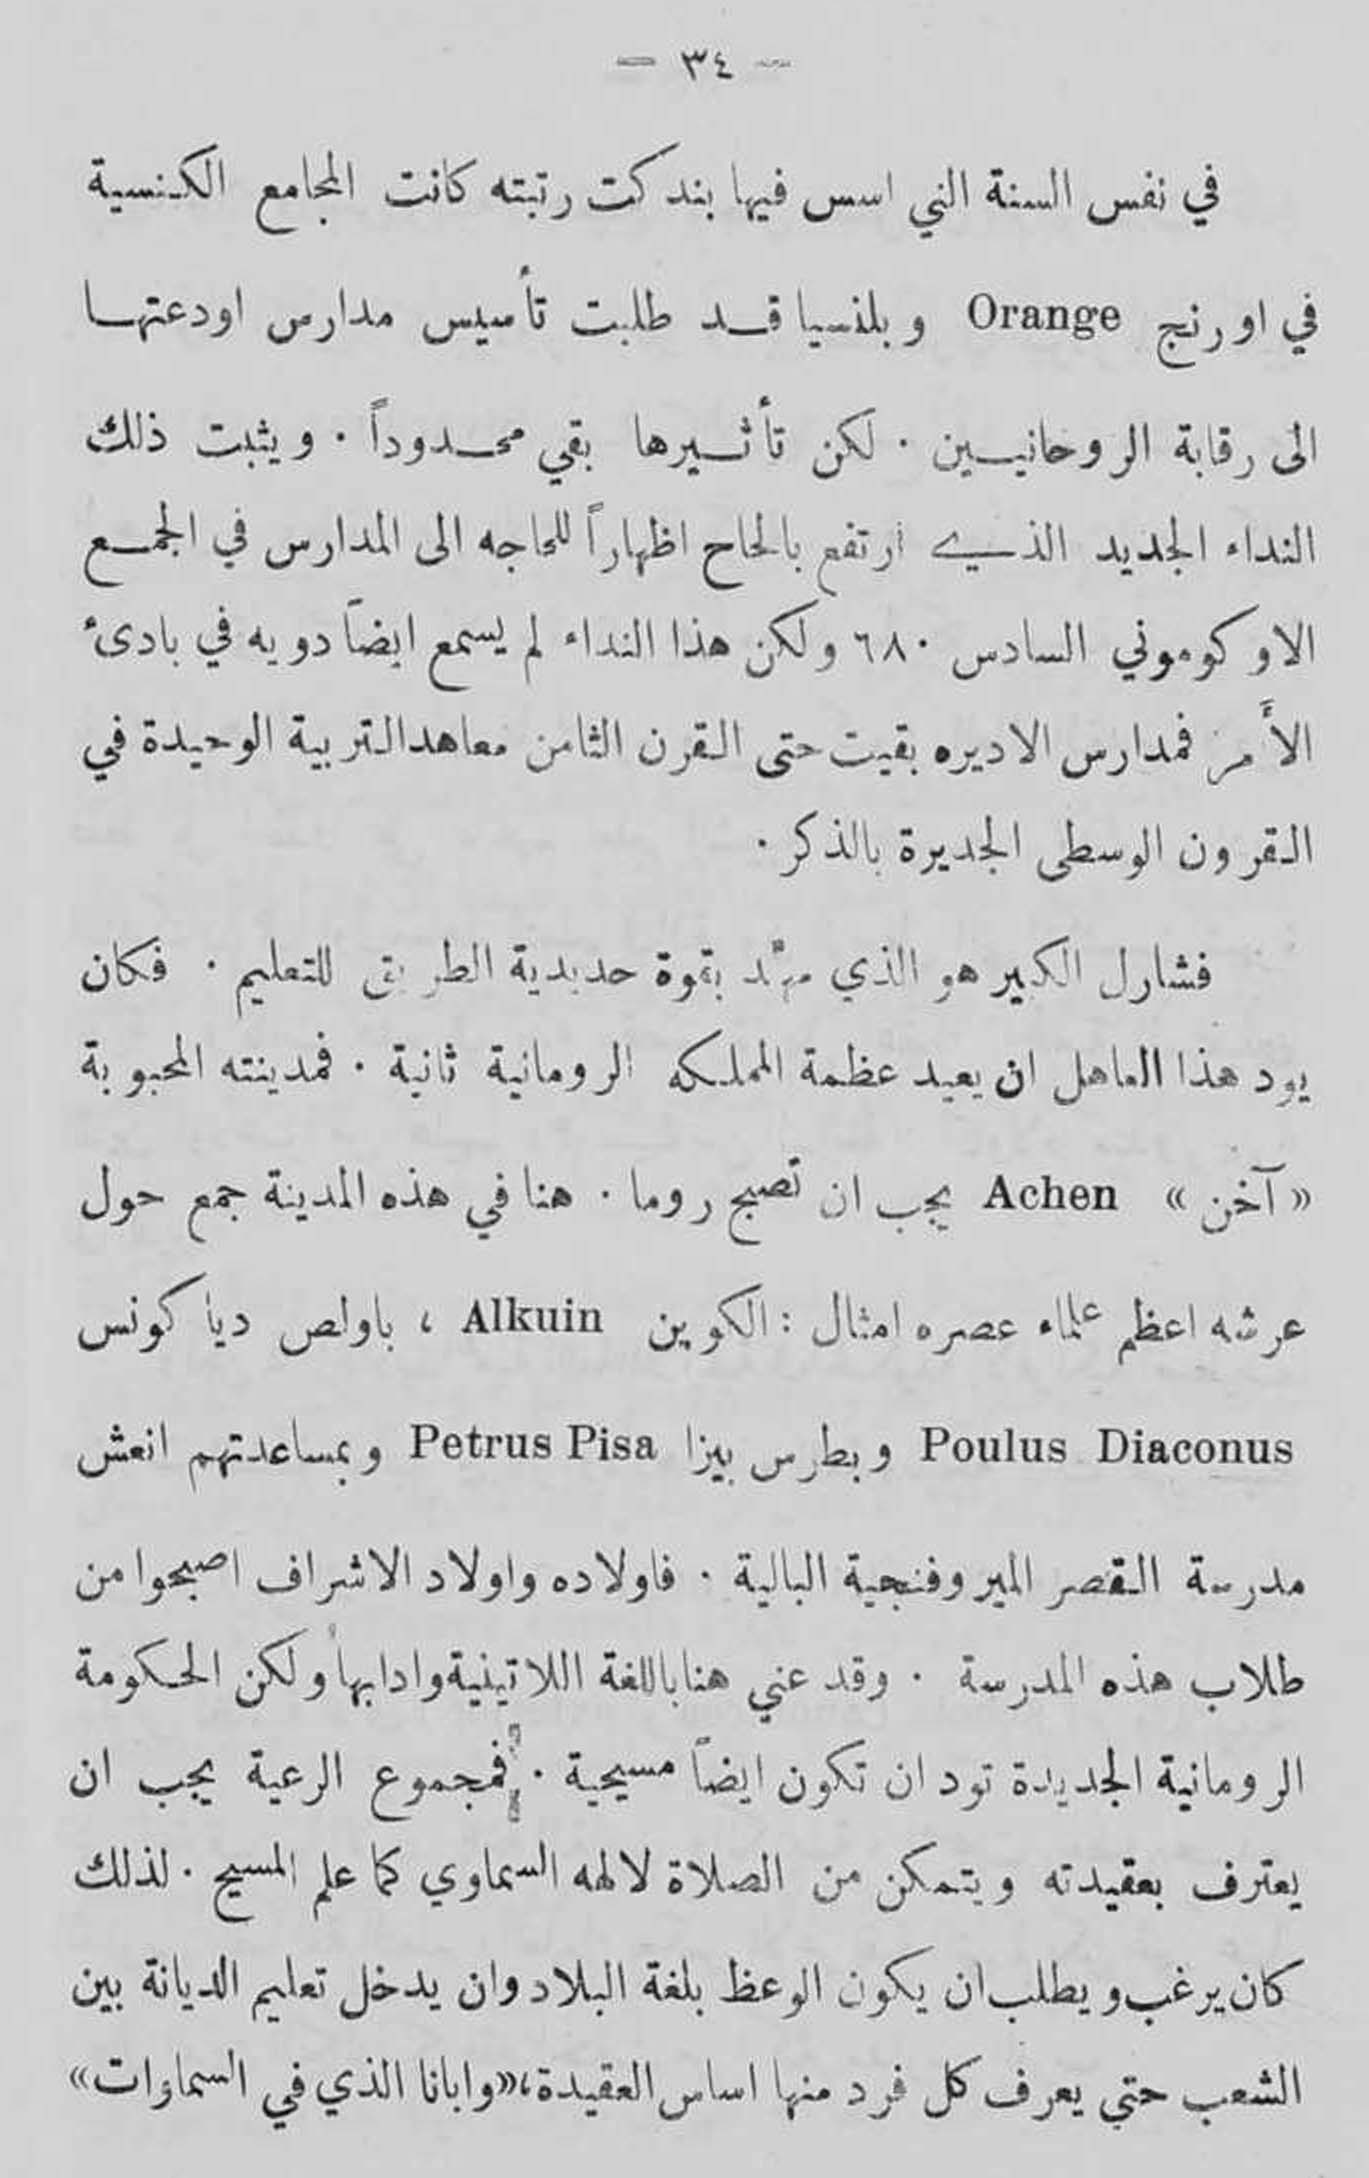 — ٣٤ —
في نفس السنة التي اسس فيها بندكت رتبته كانت المجامع الكنسية
في اورنج Orange وبلنسيا قد طلبت تأسيس مدارس اودعتها
الى رقابة الروحانيين . لكن تأثيرها بقي محدوداً . ويثبت ذلك
النداء الجديد الذي ارتفع بالحاح اظهاراً للحاجه الى المدارس في المجمع
الاوكوموني السادس ٦٨٠ ولكن هذا النداء لم يسمع ايضاً دويه في بادىء
الأمر فمدارس الاديره بقيت حتى القرن الثامن معاهد التربية الوحيدة في
القرون الوسطى الجديرة بالذكر .
فشارل الكبير هو الذي مهّد بقوة حديدية الطريق للتعليم . فكان
يود هذا العاهل ان يعيد عظمة المملكه الرومانية ثانية . فمدينته المحبوبة
« آخن » Achen يجب ان تصبح روما . هنا في هذه المدينة جمع حول
عرشه اعظم علماء عصره امثال : الكوين Alkuin ، باولص دياكونس
Poulus Diaconus وبطرس بيزا Petrus Pisa وبمساعدتهم انعش
مدرسة القصر الميروفنجية البالية . فاولاده واولاد الاشراف اصبحوا من
طلاب هذه المدرسة . وقد عني هنا باللغة اللاتينية وادابها ولكن الحكومة
الرومانية الجديدة تود ان تكون ايضاً مسيحية . فمجموع الرعية يجب ان
يعترف بعقيدته ويتمكن من الصلاة لالهه السماوي كما علم المسيح . لذلك
كان يرغب ويطلب ان يكون الوعظ بلغة البلاد وان يدخل تعليم الديانة بين
الشعب حتي يعرف كل فرد منها اساس العقيدة ، «وابانا الذي في السماوات»